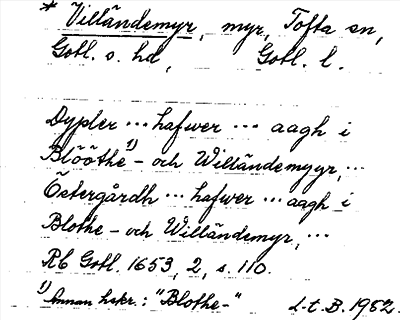 * Villändemyr, myr, Tofta sn,
Gotl. s. hd, Gotl. l.
Dypler ... hafwer ... aagh i
Blööthe¹⁾- och Willändemyyr, ...
Östergårdh ... hafwer ... aagh i
Blothe- och Willändemyr, ...
Rb Gotl. 1653, 2, s. 110.
¹⁾ Annan hskr.: "Blothe-" L-t. B. 1952.